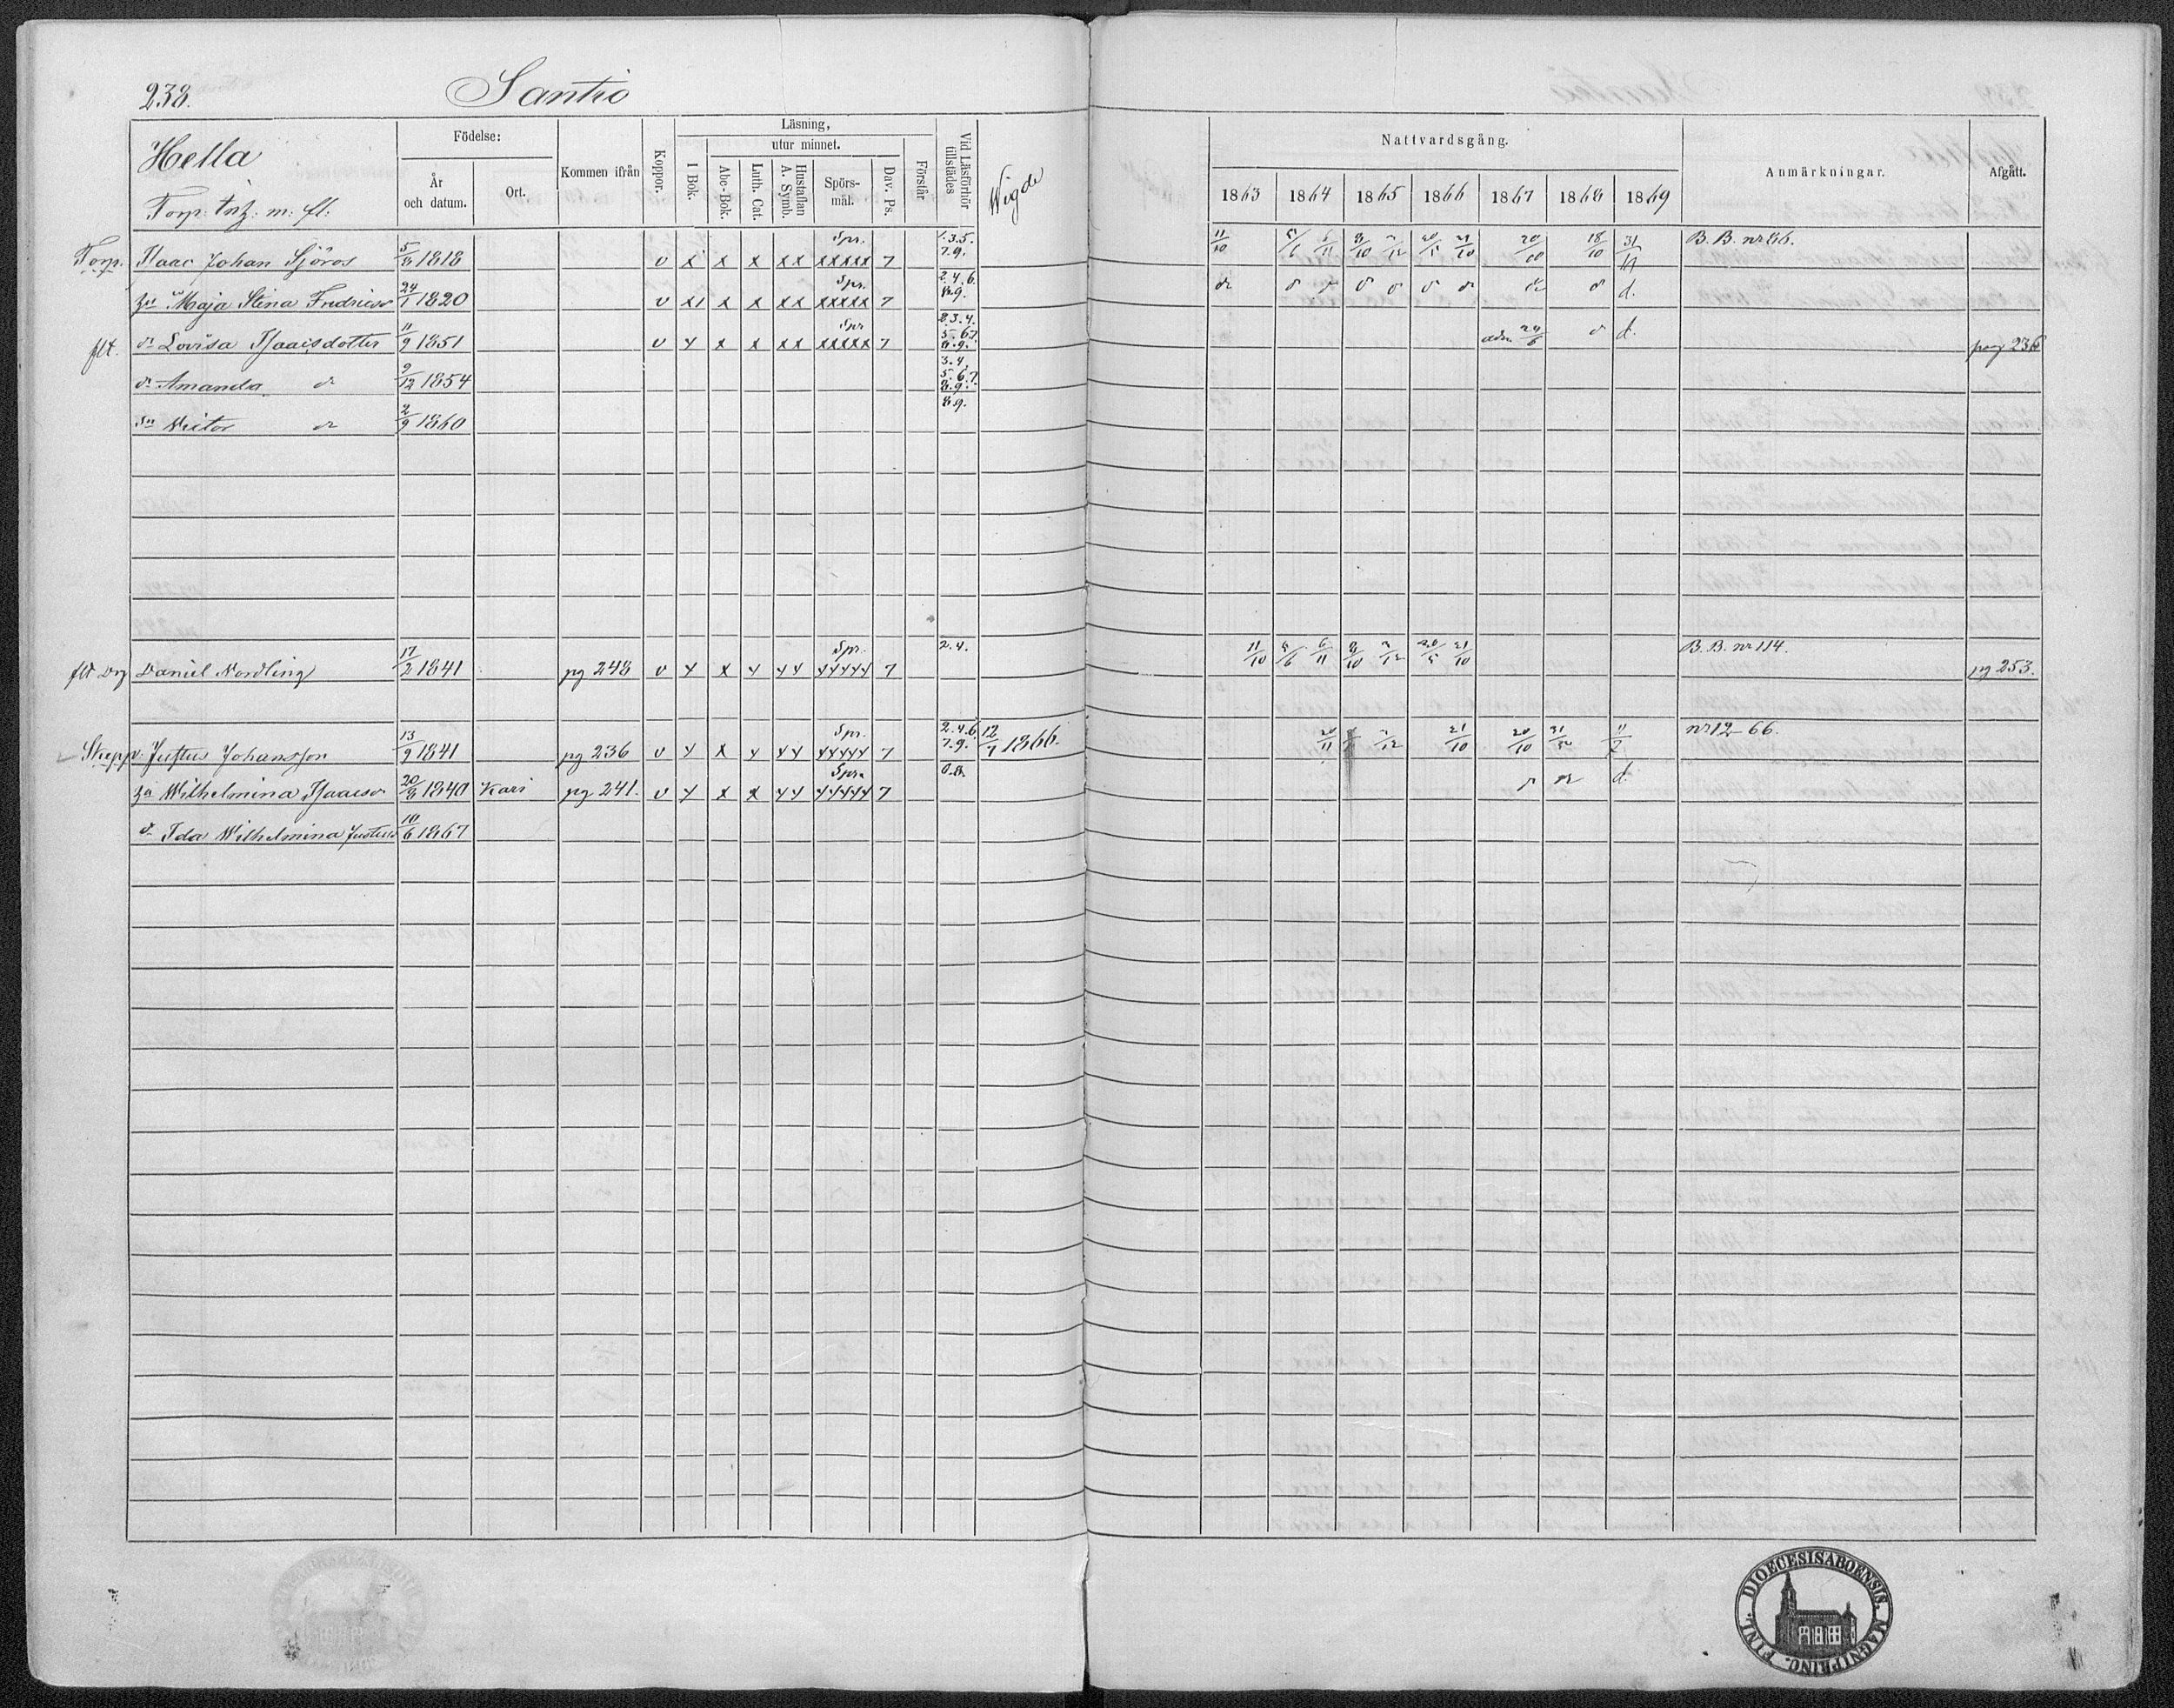 238.
Santio
Hella
Torp: Inh: m: fl:
Födelse:
År och datum.
Ort.
Kommen ifrån
Koppor.
Läsning,
I Bok.
utur minnet.
Abc-Bok.
Luth. Cat.
Hustaflan A. Symb.
Spörs-mål.
Dav. Ps.
Förstår
Vid Läsförhör tillstädes
Wigde
Nattvardsgång.
1863 1864 1865 1866 1867 1868 1869
Anmärkningar.
Afgått.
Torp. Isaac Johan Sjöros 5/8 1818 v x x x xx Spr. xxxxx 7 1.3.5. 7.9. 11/10 18/10 31/ B. B. nr 86.
hu Maja Stina Fredricsr 24/1 1820 v x x x xx Spr. xxxxx 7 2.4.6. 8.9. d.
flt. dr Lovisa Isaacsdotter 11/9 1851 v x x x xx Spr xxxxx 7 2.3.4. 5.6.7. 8.9. d. pag 236
dr Amanda dr 9/12 1854 3.4 5.6.7. 8.9.
sn Victor dr 2/9 1860 8.9.
flt Drg Daniel Nordling 17/2 1841 pg 248 v x x x xx Spr. xxxxx 7 2.4. 11/10 5/6 6/11 8/10 20/5 21/10 B. B. nr 114. pg 253.
Skepp. Justus Johansson 13/9 1841 pg 236 v x x x xx Spr. xxxxx 7 2.4.6 7.9. 12/7 1866. 20/11 21/10 20/10 nr 12-66.
hu Wilhelmina Isaacsr 20/8 1840 Kari pg 241. v x x x xx Spr. xxxxx 7 d.
dr Ida Wilhelmina Justusd 10/6 1867
FINL. DIOECESIS ABOENSIS. MAGNI PRINC.